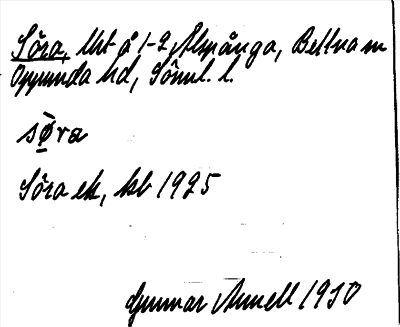 Söra, Urt å 1-2 Ålspånga, Bettna sn
Oppunda hd, Sörml. l.
sø̀ra
Söra ek, kb 1925
Gunnar Annell 1930